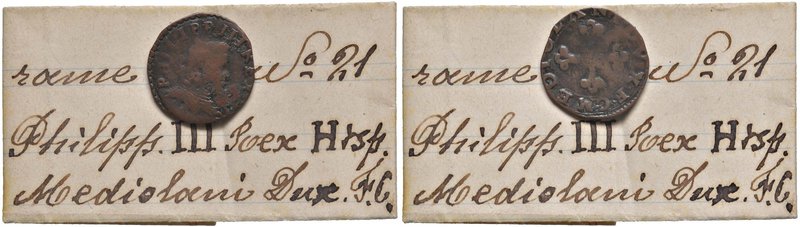 rame No 21
Philipp. III Rex Hisp.
Mediolani Dux. F.C.
rame No 21
Philipp. III Rex Hisp.
Mediolani Dux. F.C.